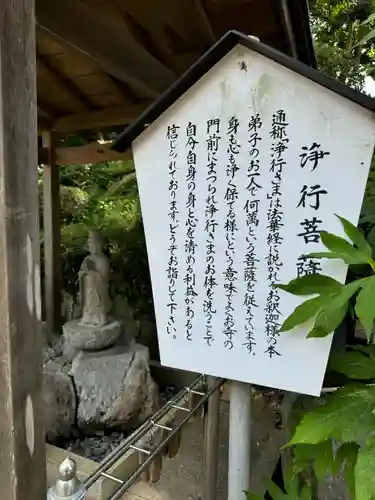 浄行菩薩
通称「浄行さま」は法華経に説かれるお釈迦様の本
弟子のお一人で何萬という菩薩を従えています。
身も心も浄く保てる様にという意味でお寺の
門前にまつられ浄行さまのお体を洗うことで
自分自身の身と心を清める利益があると
信じられております。どうぞお詣りして下さい。